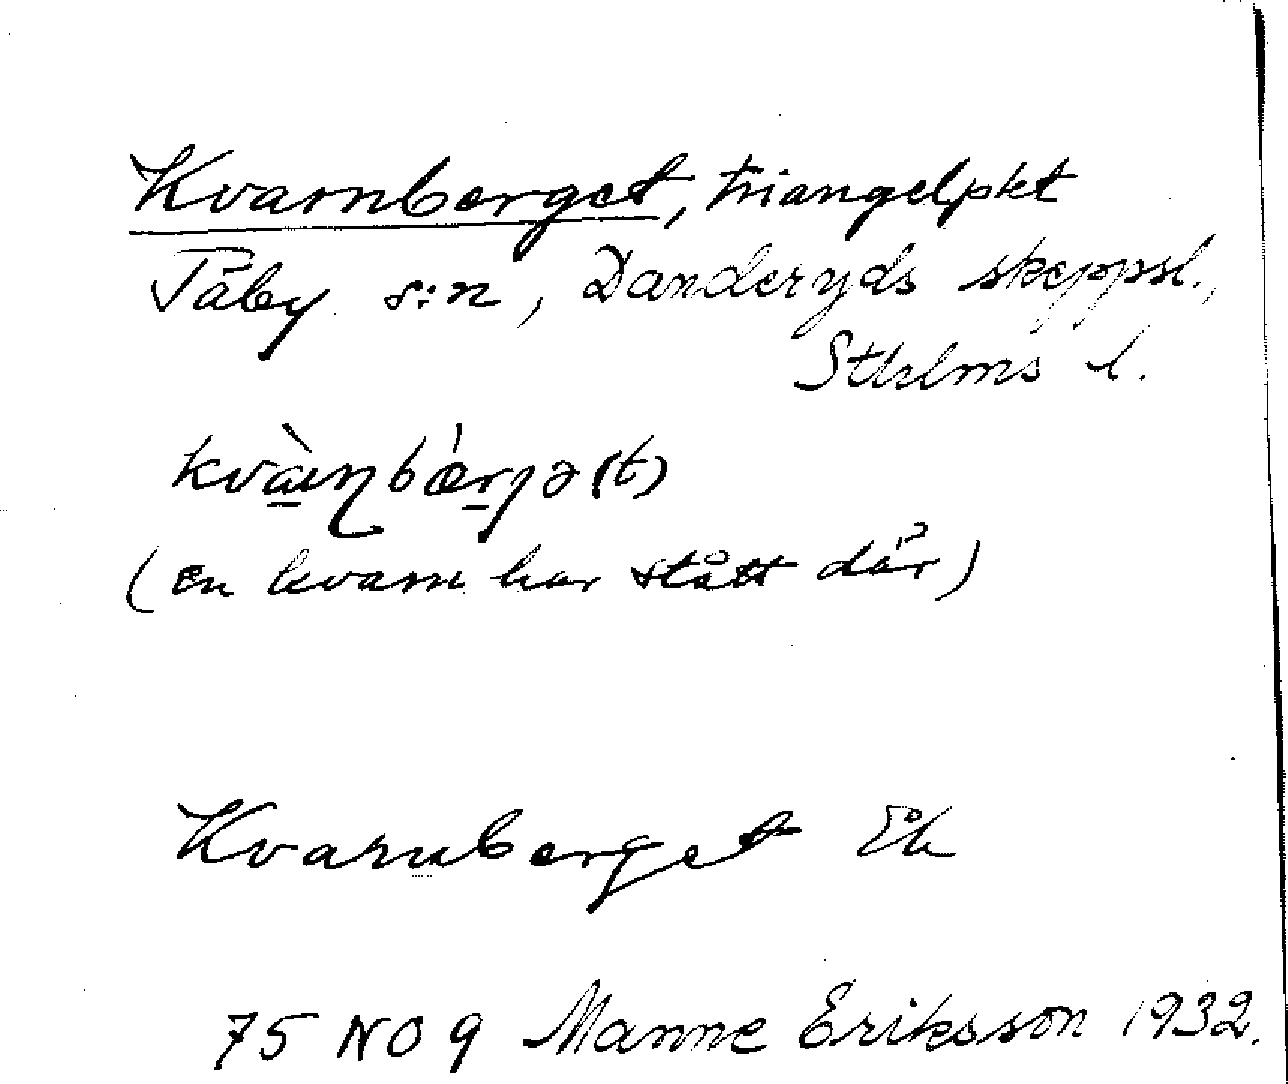 Kvarnberget, triangelpkt
Täby s:n, Danderyds skeppsl.,
Sthlms l.
(en kvarn har stått där)
Kvarnberget Ek
75 NO 9 Manne Eriksson 1932.